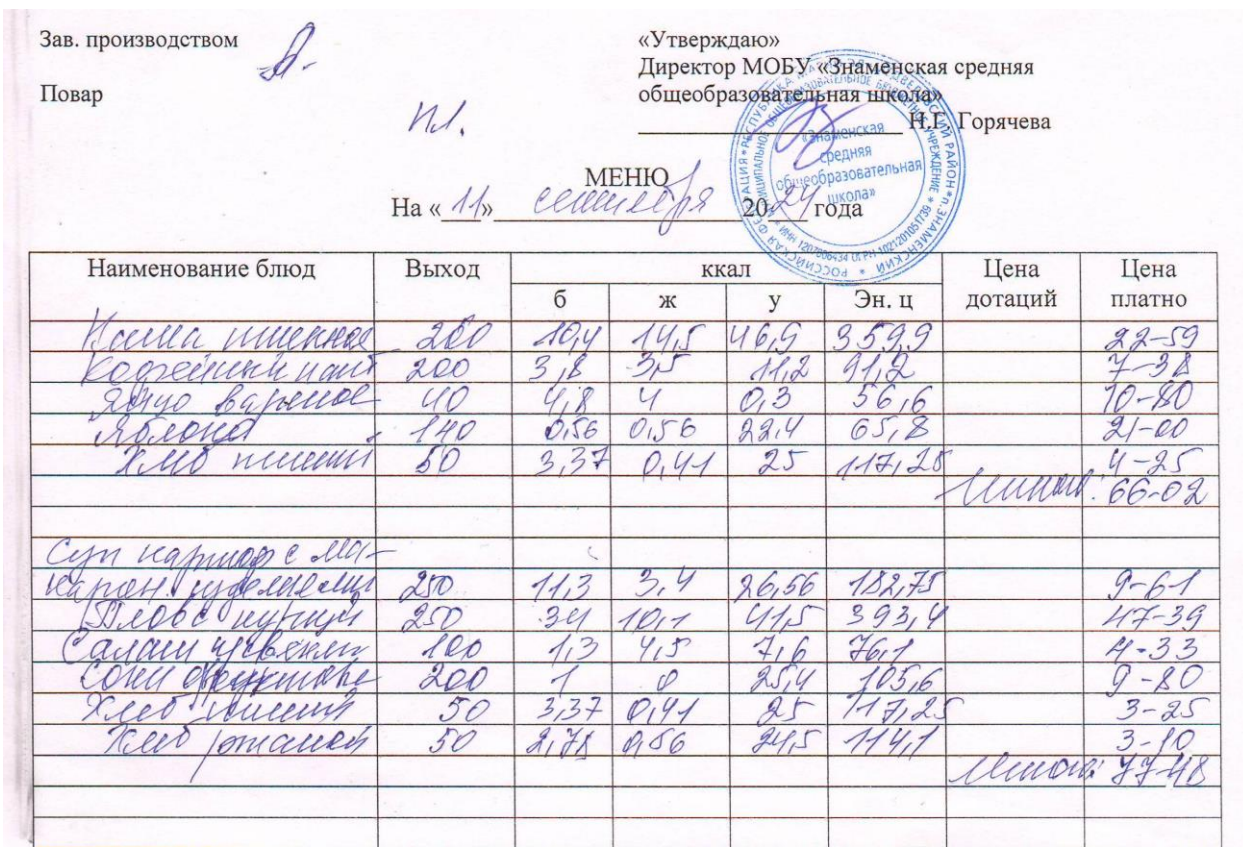 Зав. производством
Повар
«Утверждаю»
Директор МОБУ «Знаменская средняя
общеобразовательная школа»
Н.Г. Горячева
«Знаменская
средняя
общеобразовательная
школа»
МЕНЮ
На «11» сентября 2024 года
Наименование блюд Выход ккал Цена дотаций Цена платно
б ж у Эн. ц
Каша пшенная 200 10,4 14,5 46,9 359,9 22-59
Кофейный нап 200 3,8 3,5 11,2 91,2 7-38
Яйцо вареное 40 4,8 4 0,3 56,6 10-80
Яблоко 140 0,56 0,56 22,4 65,8 21-00
Хлеб пшенич 50 3,37 0,41 25 117,25 4-25
Итого: 66-02
Суп картоф с ма-
карон. изделиями 250 11,3 3,4 26,56 182,75 9-61
Плов с курицей 250 34 10,1 41,5 393,4 47-39
Салат 100 1,3 4,5 7,6 76,1 4-33
Соки фруктовые 200 1 0 25,4 105,6 9-80
Хлеб пшенич 50 3,37 0,41 25 117,25 3-25
Хлеб ржаной 50 2,78 0,56 24,5 114,1 3-10
Итого: 77-48